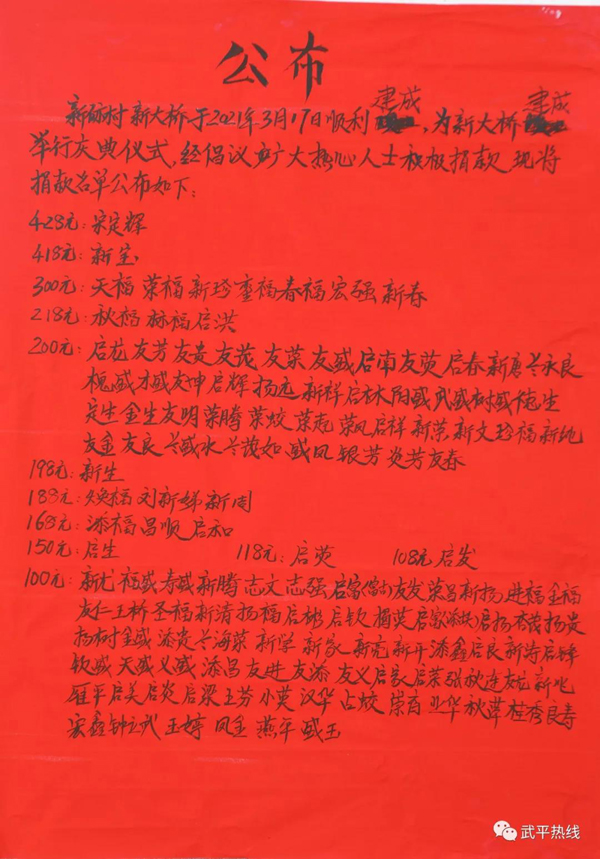 公布
新砾村新大桥于2021年3月17日顺利建成,为新大桥建成
举行庆典仪式,经倡议广大热心人士积极捐款,现将
捐款名单公布如下:
428元:宋定辉
418元:新宝
300元:天福 荣福 新玲 奎福 春福 宏强 新春
218元:秋福 赫福 启洪
200元:启龙 友芳 友贵 友茂 友荣 友盛 启南 友荧 启春 新唐 兰永良
槐盛 才盛 友坤 启辉 扬远 新祥 启林 阳盛 武盛 树盛 德生
定生 金生 友明 荣腾 荣姣 荣起 荣凤 启祥 新荣 新文 玲福 新地
友金 友良 兰盛水 兰茂如 盛凤 银芳 炎芳 友春
198元:新生
188元:焕福 刘新娣 新周
168元:添福 昌顺 启和
150元:启生 118元:启荧 108元 启发
100元:新尤 福盛 寿盛 新腾 志文 志强 启富 友发 荣昌 新扬 进福 金福
友仁 王桥 圣福 新清 扬福 启彬 启钦 梅英 启家 启扬 秀茂 扬贵
扬树 金盛 添贵 兰海荣 新学 新家 新亮 新开 添鑫 启良 新涛 启锋
钦盛 天盛 义盛 添昌 友进 友添 友义 启家 启荣 张秋连 友龙 新化
雁平 启美 启炎 启梁 玉芬 小英 汉华 占姣 崇育 业华 秋萍 桂秀 良寿
宏鑫 钟立武 玉婷 凤金 燕平 盛玉
武平热线